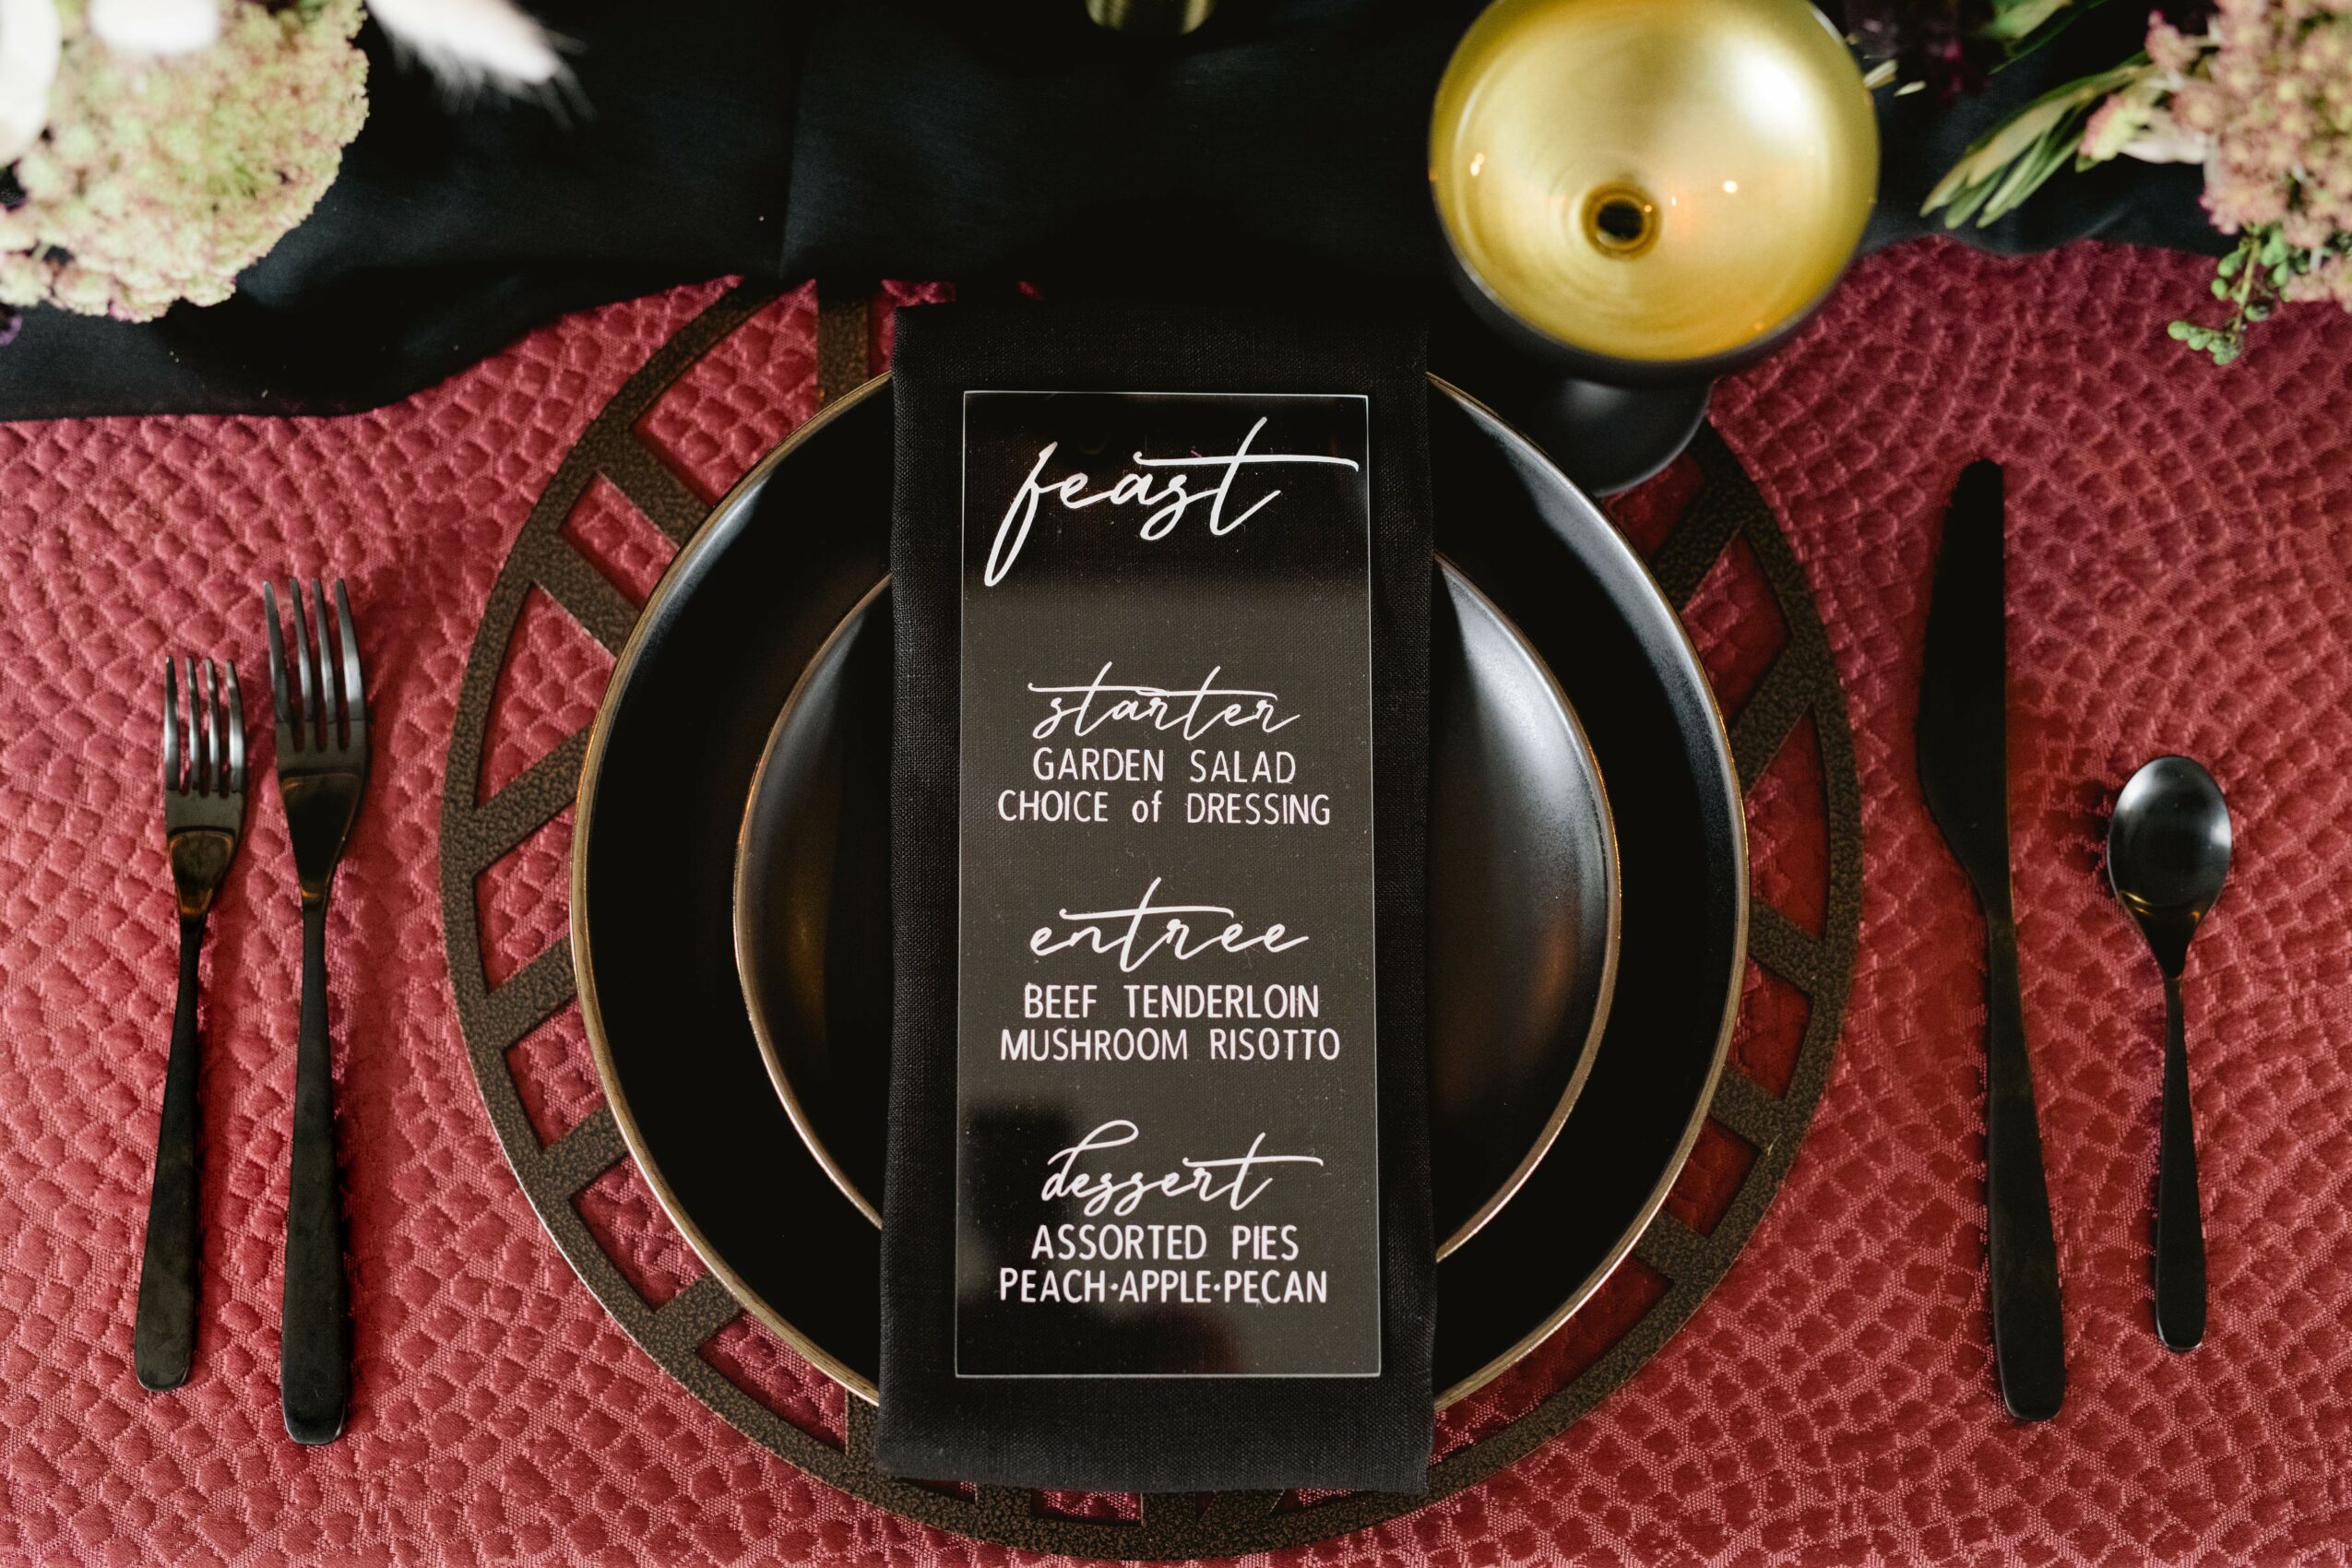 feast
starter
GARDEN SALAD
CHOICE of DRESSING
entree
BEEF TENDERLOIN
MUSHROOM RISOTTO
dessert
ASSORTED PIES
PEACH·APPLE·PECAN